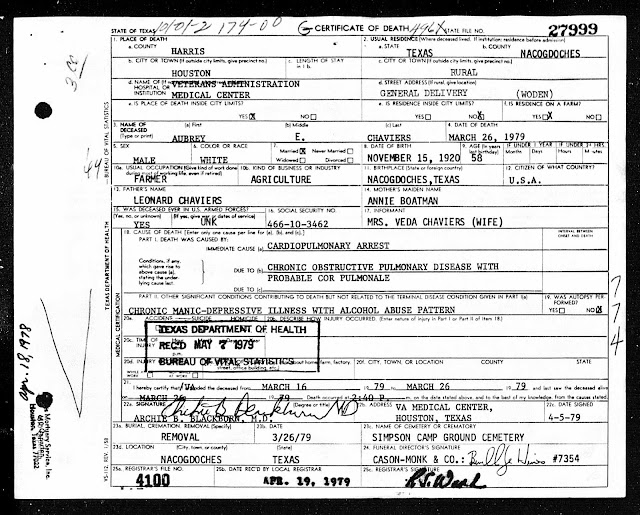 STATE OF TEXAS CERTIFICATE OF DEATH STATE FILE NO. 27999
1. PLACE OF DEATH 2. USUAL RESIDENCE (Where deceased lived. If institution: residence before admission)
a. COUNTY HARRIS a. STATE TEXAS b. COUNTY NACOGDOCHES
b. CITY OR TOWN (If outside city limits, give precinct no.) c. LENGTH OF STAY in 1 b. c. CITY OR TOWN (If outside city limits, give precinct no.)
HOUSTON RURAL
d. NAME OF HOSPITAL OR INSTITUTION VETERANS ADMINISTRATION MEDICAL CENTER d. STREET ADDRESS (If rural, give location) GENERAL DELIVERY (WODEN)
e. IS PLACE OF DEATH INSIDE CITY LIMITS? e. IS RESIDENCE INSIDE CITY LIMITS? f. IS RESIDENCE ON A FARM?
YES X NO YES NO X YES X NO
3. NAME OF DECEASED (Type or print) (a) First (b) Middle (c) Last 4. DATE OF DEATH
AUBREY E. CHAVIERS MARCH 26, 1979
5. SEX 6. COLOR OR RACE 7. Married X Never Married Widowed Divorced 8. DATE OF BIRTH 9. AGE (In years last birthday) IF UNDER 1 YEAR Months Days IF UNDER 24 HRS. Hours Minutes
MALE WHITE NOVEMBER 15, 1920 58
10a. USUAL OCCUPATION (Give kind of work done during most of working life, even if retired) 10b. KIND OF BUSINESS OR INDUSTRY 11. BIRTHPLACE (State or foreign country) 12. CITIZEN OF WHAT COUNTRY?
FARMER AGRICULTURE NACOGDOCHES, TEXAS U.S.A.
13. FATHER'S NAME 14. MOTHER'S MAIDEN NAME
LEONARD CHAVIERS ANNIE BOATMAN
15. WAS DECEASED EVER IN U.S. ARMED FORCES? 16. SOCIAL SECURITY NO. 17. INFORMANT
(Yes, no, or unknown) (If yes, give war or dates of service)
YES UNK 466-10-3462 MRS. VEDA CHAVIERS (WIFE)
18. CAUSE OF DEATH [Enter only one cause per line for (a), (b), and (c).] INTERVAL BETWEEN ONSET AND DEATH
PART I. DEATH WAS CAUSED BY:
IMMEDIATE CAUSE (a) CARDIOPULMONARY ARREST
Conditions, if any, which gave rise to above cause (a), stating the underlying cause last.
DUE TO (b) CHRONIC OBSTRUCTIVE PULMONARY DISEASE WITH
DUE TO (c) PROBABLE COR PULMONALE
PART II. OTHER SIGNIFICANT CONDITIONS CONTRIBUTING TO DEATH BUT NOT RELATED TO THE TERMINAL DISEASE CONDITION GIVEN IN PART I(a) 19. WAS AUTOPSY PERFORMED?
CHRONIC MANIC-DEPRESSIVE ILLNESS WITH ALCOHOL ABUSE PATTERN YES NO X
20a. ACCIDENT SUICIDE HOMICIDE 20b. DESCRIBE HOW INJURY OCCURRED. (Enter nature of injury in Part I or Part II of Item 18.)
TEXAS DEPARTMENT OF HEALTH
REC'D MAY 7 1979
BUREAU OF VITAL STATISTICS
20f. CITY, TOWN, OR LOCATION COUNTY STATE
21. I hereby certify that VA attended the deceased from MARCH 16 1979 to MARCH 26 1979 and last saw the deceased alive
MARCH 26 1979 Death occurred at 2:40 P. m. on the date stated above, and to the best of my knowledge, from the causes stated.
22a. SIGNATURE Archie B. Blackburn MD (Degree or title) 22b. ADDRESS VA MEDICAL CENTER, 22c. DATE SIGNED
ARCHIE B. BLACKBURN, M.D. HOUSTON, TEXAS 4-5-79
23a. BURIAL, CREMATION, REMOVAL (Specify) 23b. DATE 23c. NAME OF CEMETERY OR CREMATORY
REMOVAL 3/26/79 SIMPSON CAMP GROUND CEMETERY
23d. LOCATION (City, town, or county) (State) 24. FUNERAL DIRECTOR'S SIGNATURE
NACOGDOCHES TEXAS CASON-MONK & CO.: #7354
25a. REGISTRAR'S FILE NO. 25b. DATE REC'D BY LOCAL REGISTRAR 25c. REGISTRAR'S SIGNATURE
4100 APR. 19, 1979
TEXAS DEPARTMENT OF HEALTH BUREAU OF VITAL STATISTICS
MEDICAL CERTIFICATION
Mortuary Service, Inc.
Houston, Texas 77022
774